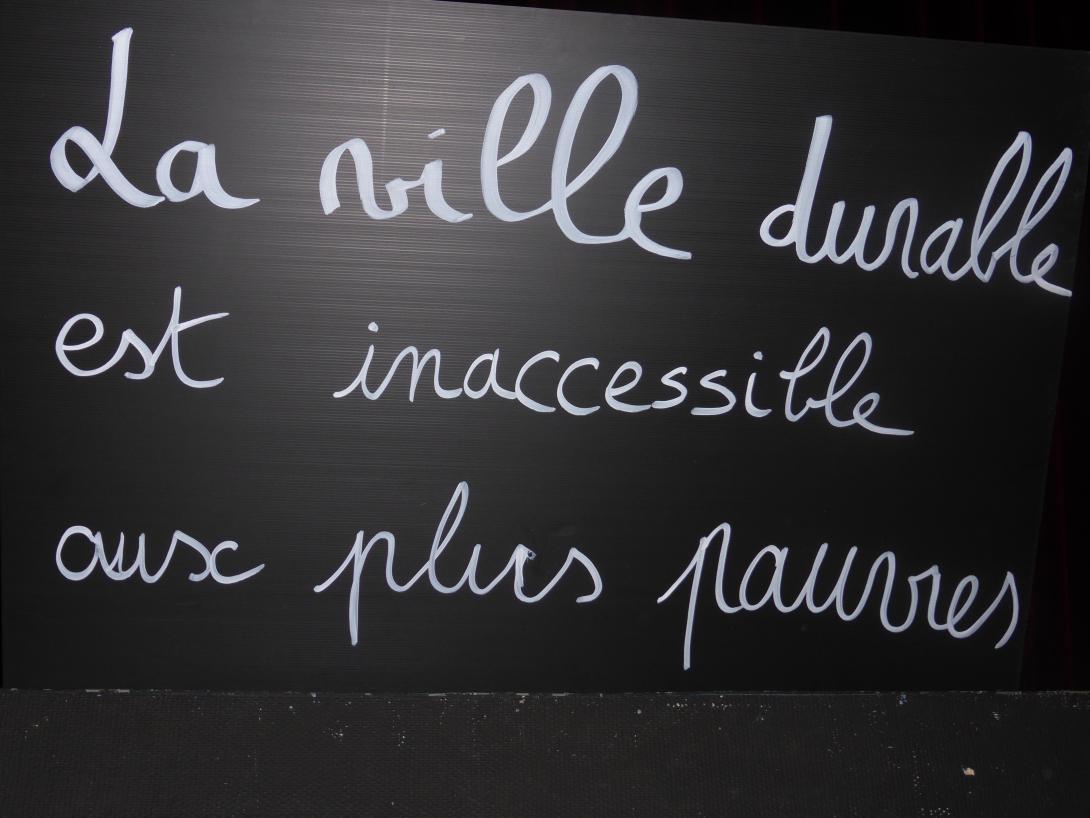 La ville durable
est inaccessible
aux plus pauvres